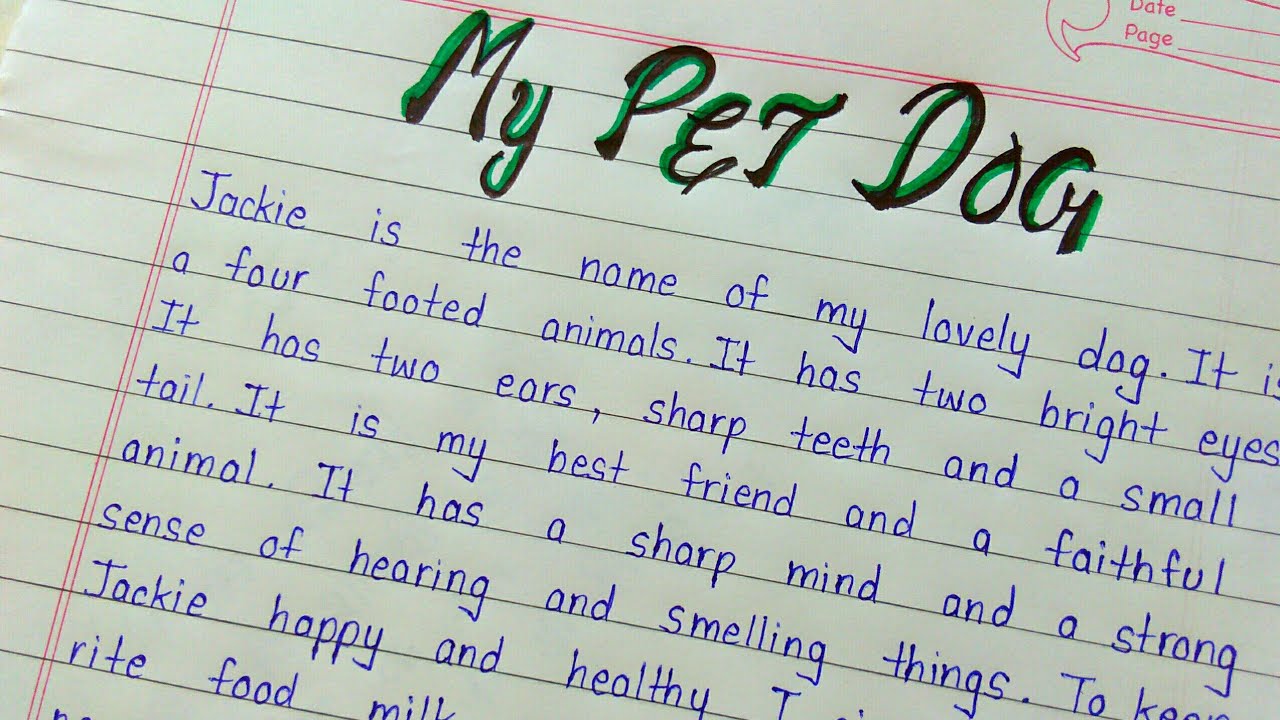 Date
Page
My PET DOG
Jackie is the name of my lovely dog. It is
a four footed animals. It has two bright eyes
It has two ears, sharp teeth and a small
tail. It is my best friend and a faithful
animal. It has a sharp mind and a strong
sense of hearing and smelling things. To keep
Jackie happy and healthy I
rite food milk